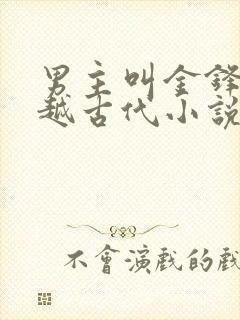 男主叫金鋒
越古代小說
不會演戲的戲